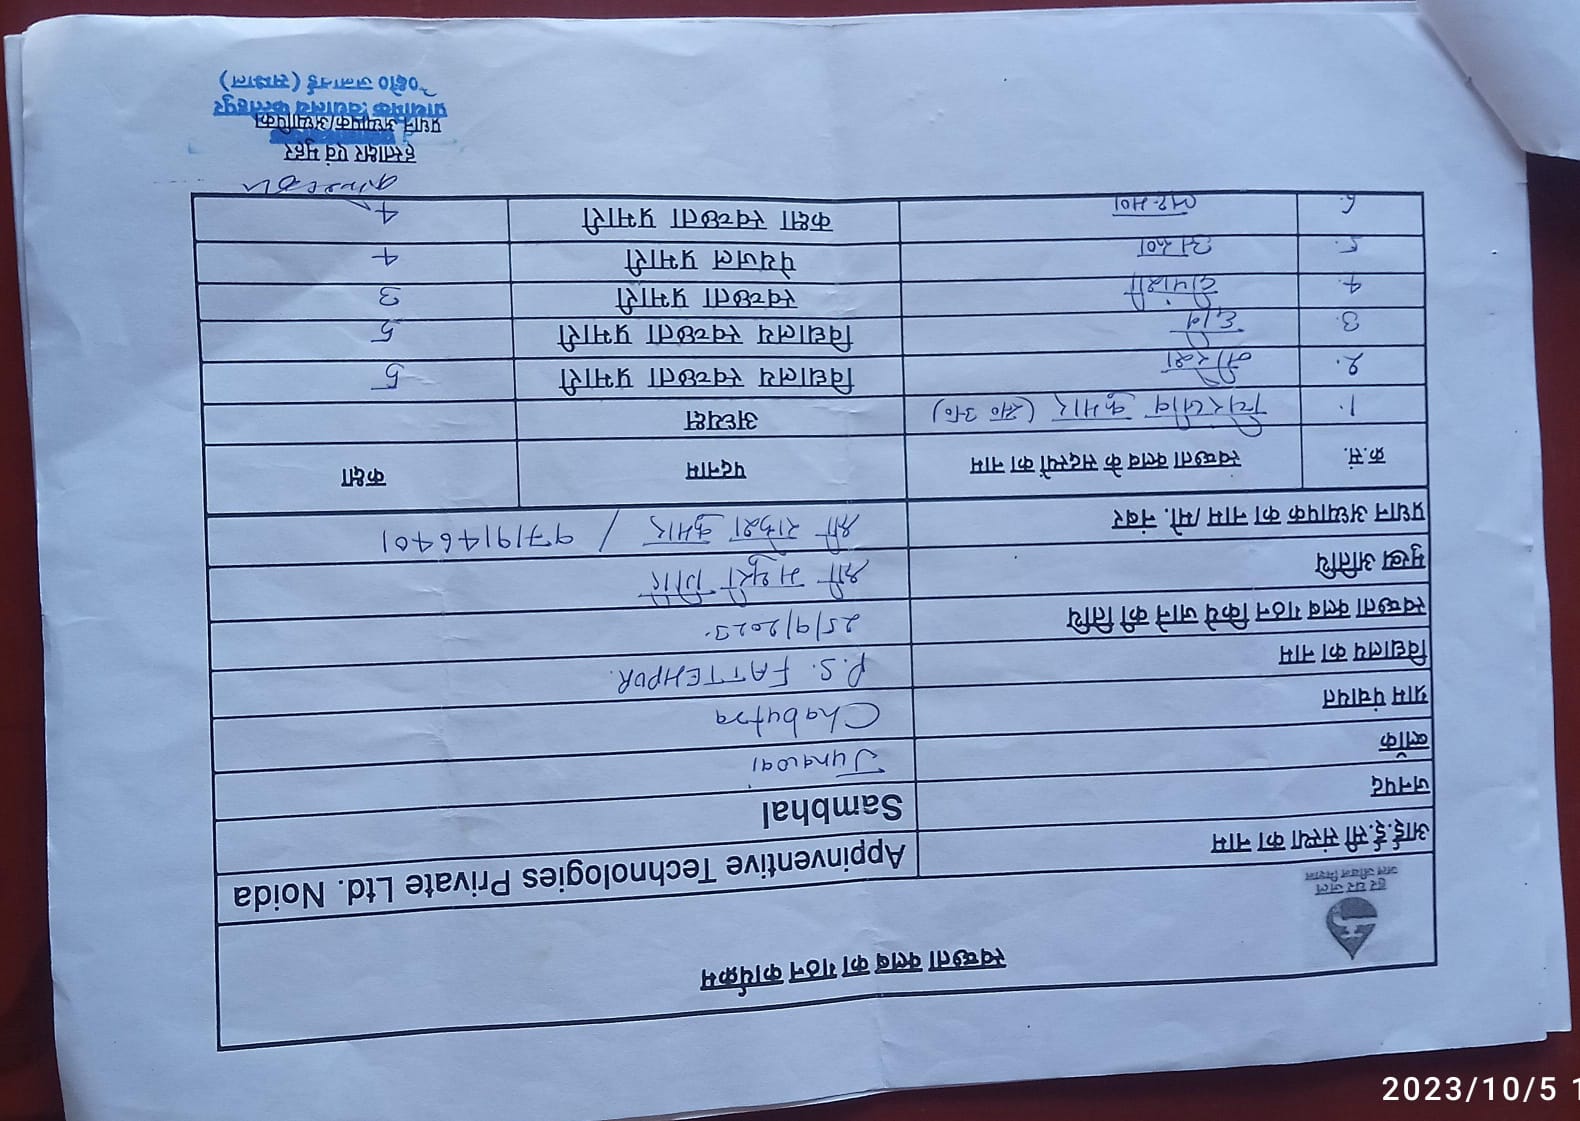 स्वच्छता क्लब का गठन कार्यक्रम
हर घर जल
जल जीवन मिशन
आई.ई.सी संस्था का नाम Appinventive Technologies Private Ltd. Noida
जनपद Sambhal
ब्लॉक Junawai
ग्राम पंचायत Chabutra
विद्यालय का नाम P.S. FATTEHPUR.
स्वच्छता क्लब गठन किये जाने की तिथि 25/9/2023.
मुख्य अतिथि श्री मथुरी गिरि
प्रधान अध्यापक का नाम /मो. नंबर श्री राकेश कुमार / 9719146401
क्र.सं. स्वच्छता क्लब के सदस्यों का नाम पदनाम कक्षा
1. चिरंजीव कुमार (स० अ०) अध्यक्ष
2. विद्यालय स्वच्छता प्रभारी 5
3. विद्यालय स्वच्छता प्रभारी 5
4. स्वच्छता प्रभारी 3
5. पेयजल प्रभारी 4
6. कक्षा स्वच्छता प्रभारी 4
हस्ताक्षर एवं मुहर
प्रधान अध्यापक/अध्यापिका
प्राथमिक विद्यालय फत्तेहपुर
(सम्भल)
2023/10/5 1